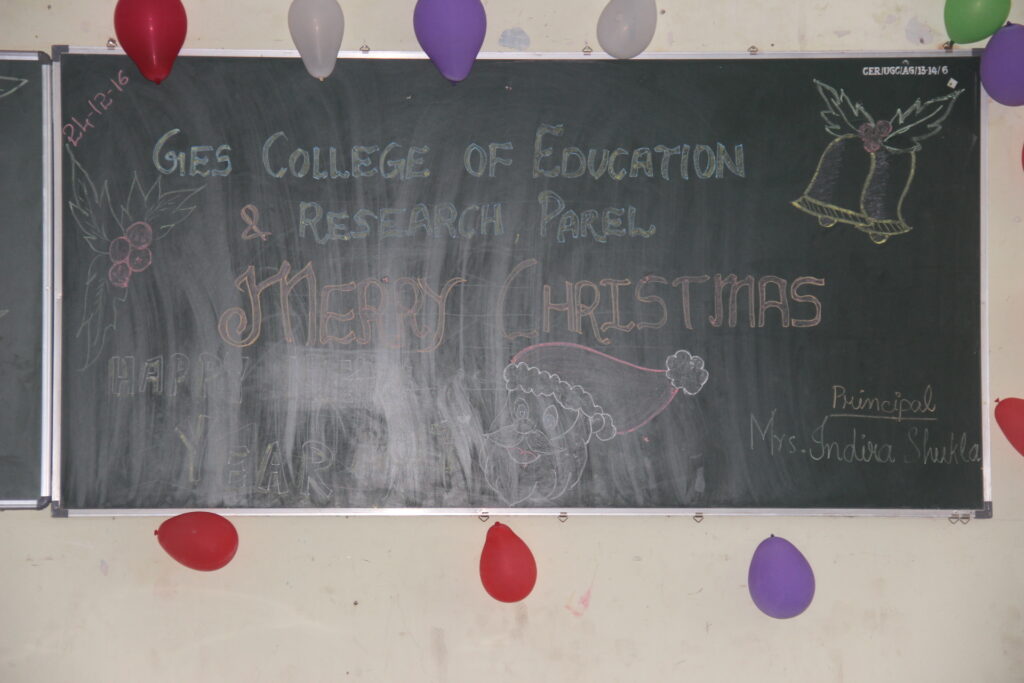 24-12-16
CER/UGC/AG/13-14/6
GES COLLEGE OF EDUCATION
& RESEARCH, PAREL
MERRY CHRISTMAS
HAPPY
YEAR
Principal
Mrs. Indira Shukla